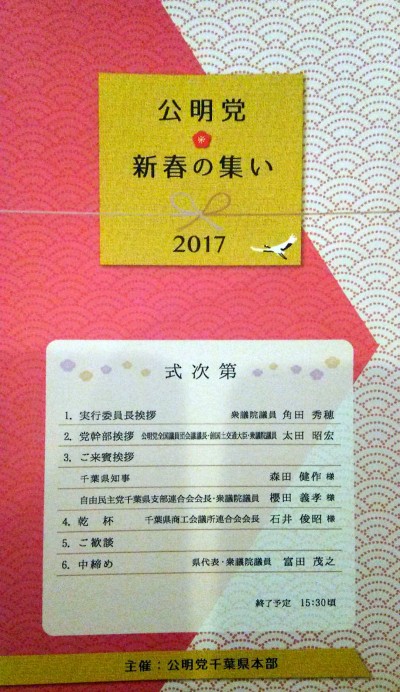 公明党
新春の集い
2017
式次第
1. 実行委員長挨拶 衆議院議員 角田 秀穂
2. 党幹部挨拶 公明党全国議員団会議議長・前国土交通大臣・衆議院議員 太田 昭宏
3. ご来賓挨拶
千葉県知事 森田 健作 様
自由民主党千葉県支部連合会会長・衆議院議員 櫻田 義孝 様
4. 乾 杯 千葉県商工会議所連合会会長 石井 俊昭 様
5. ご歓談
6. 中締め 県代表・衆議院議員 富田 茂之
終了予定 15:30頃
主催：公明党千葉県本部